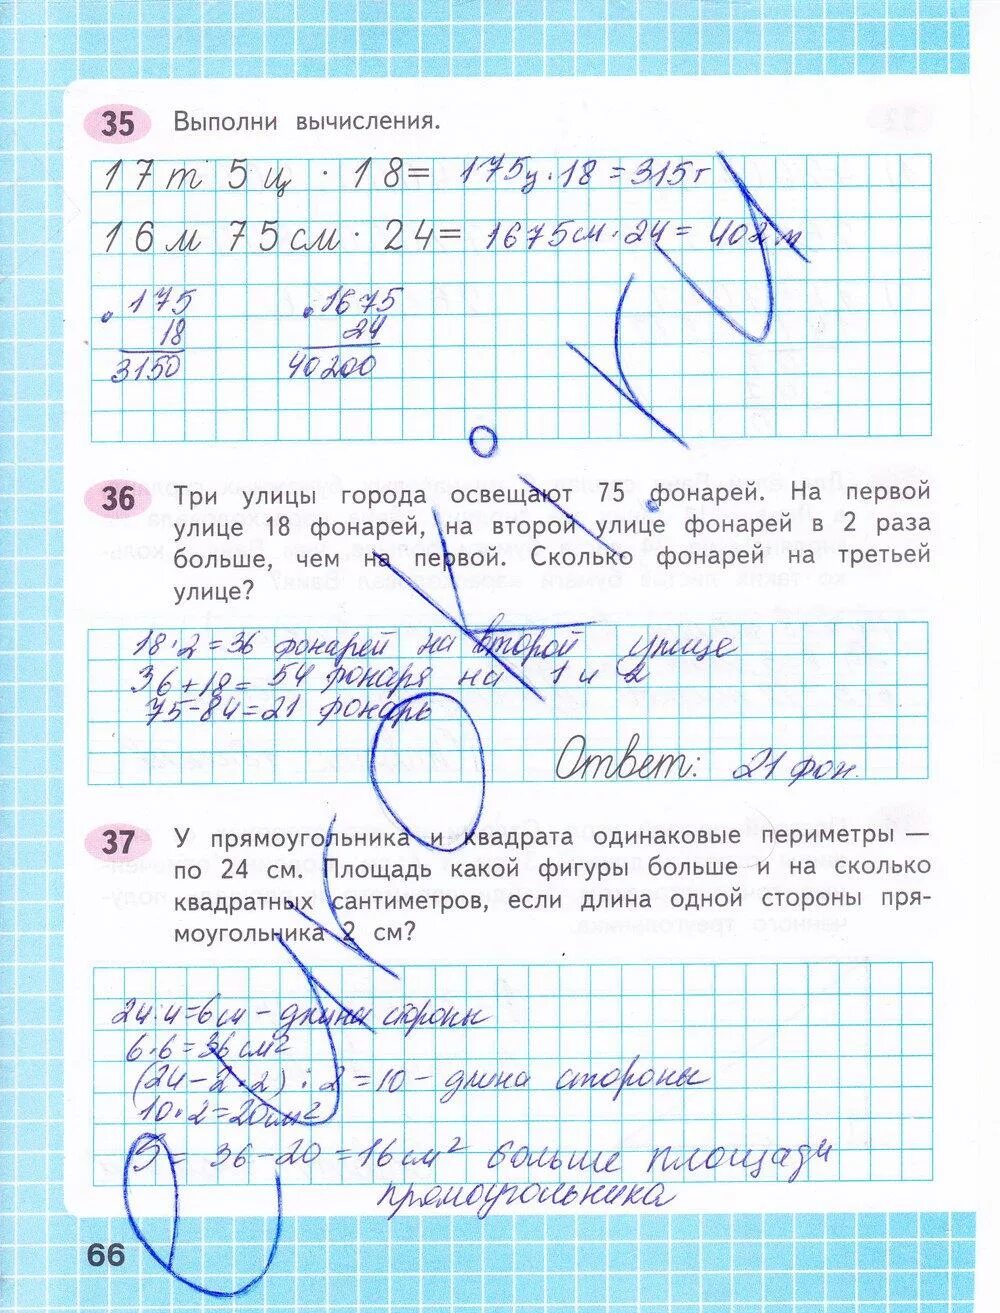 35 Выполни вычисления.
17 т 5 ц · 18 = 175ц · 18 = 315т
16 м 75 см · 24 = 1675см · 24 = 402 м
175 1675
18 24
3150 40200
36 Три улицы города освещают 75 фонарей. На первой
улице 18 фонарей, на второй улице фонарей в 2 раза
больше, чем на первой. Сколько фонарей на третьей
улице?
18·2=36 фонарей на второй улице
36+18= 54 фонаря на 1 и 2
75-84=21 фонарь
Ответ: 21 фон.
37 У прямоугольника и квадрата одинаковые периметры —
по 24 см. Площадь какой фигуры больше и на сколько
квадратных сантиметров, если длина одной стороны пря-
моугольника 2 см?
24:4=6см - длина стороны
6·6=36 см²
(24-2·2):2=10 - длина стороны
10·2=20см²
S = 36-20=16см² больше площади
прямоугольника
66